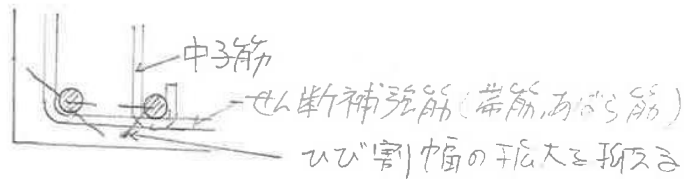 中子筋
せん断補強筋(帯筋,あばら筋)
ひび割幅の拡大を抑える